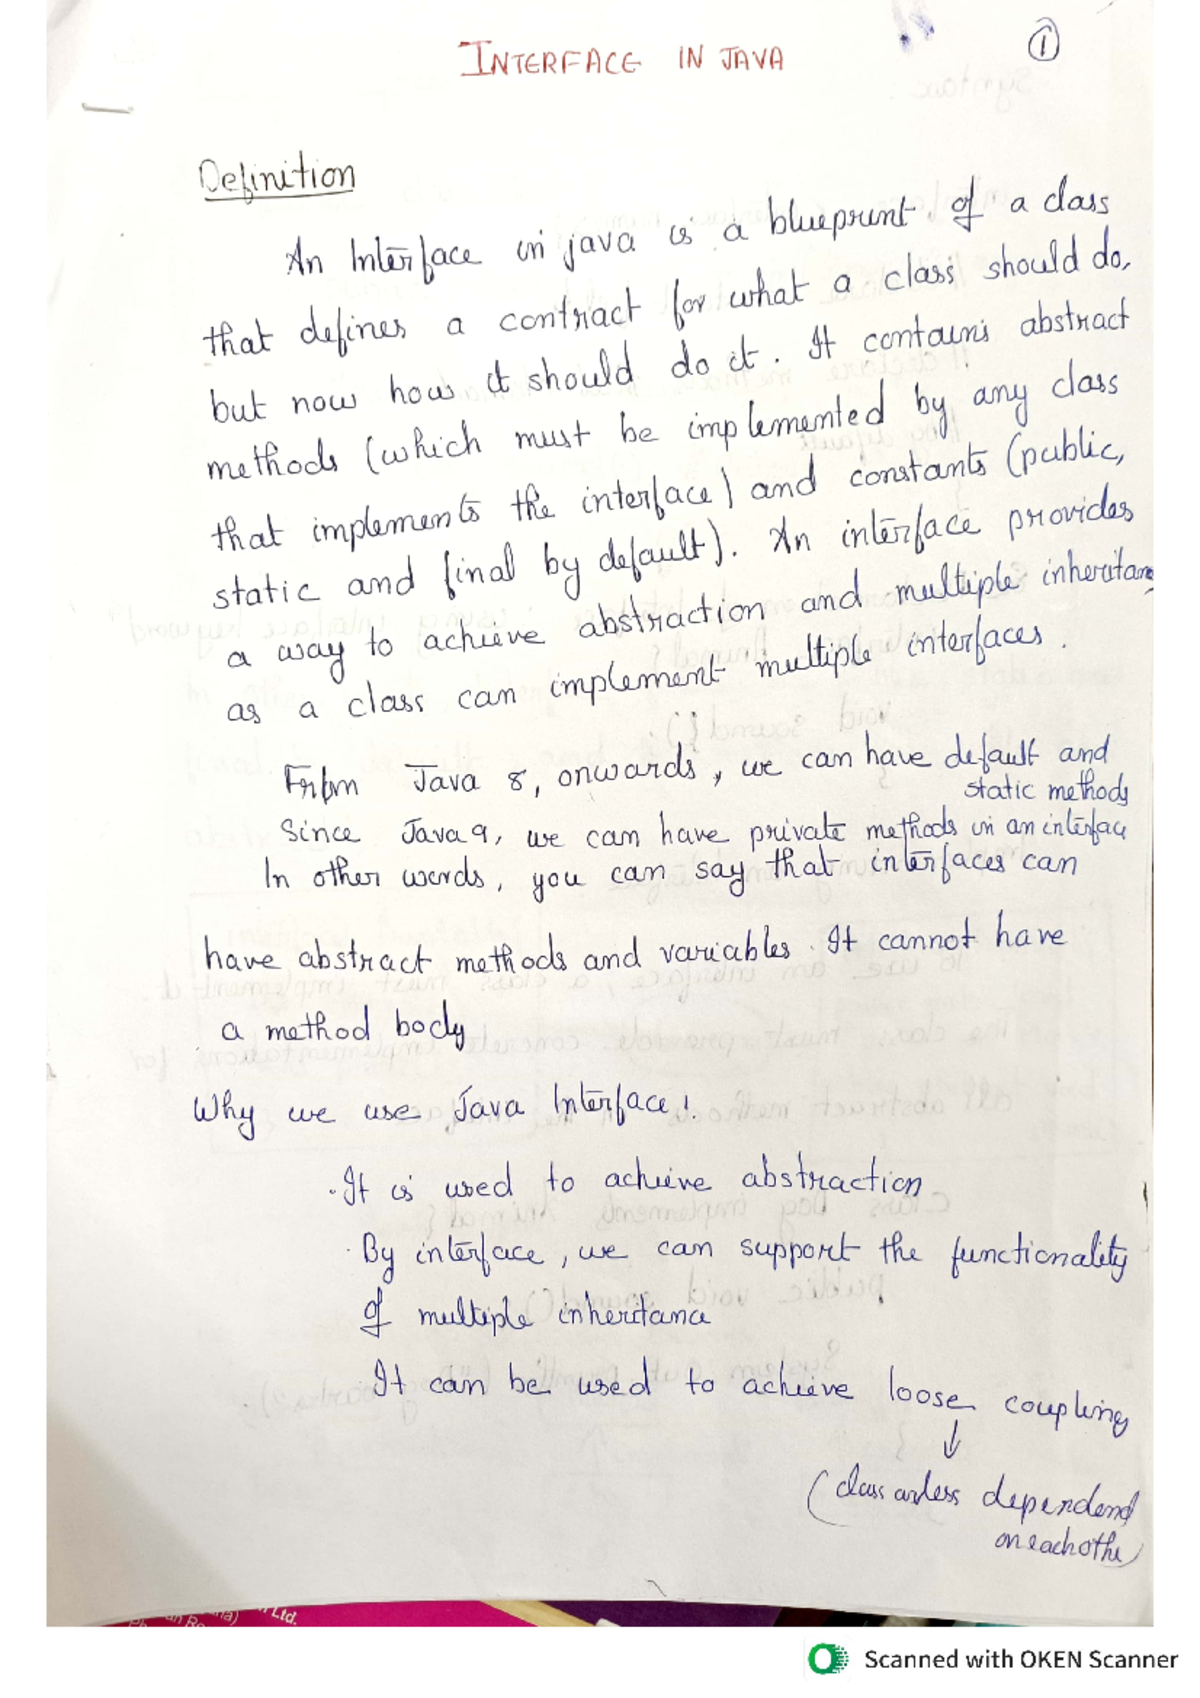 INTERFACE IN JAVA
1
Definition
An Interface in java is a blueprint of a class
that defines a contract for what a class should do,
but now how it should do it. It contains abstract
methods (which must be implemented by any class
that implements the interface) and constants (public,
static and final by default). An interface provides
a way to achieve abstraction and multiple inheritanc
as a class can implement multiple interfaces.
From Java 8, onwards, we can have default and
static methods
Since Java 9, we can have private methods in an interfac
In other words, you can say that interfaces can
have abstract methods and variables. It cannot have
a method body
Why we use Java Interface!
· It is used to achieve abstraction
· By interface, we can support the functionality
of multiple inheritance
It can be used to achieve loose coupling
↓
(class are less dependend
on each othe)
Ltd.
Scanned with OKEN Scanner